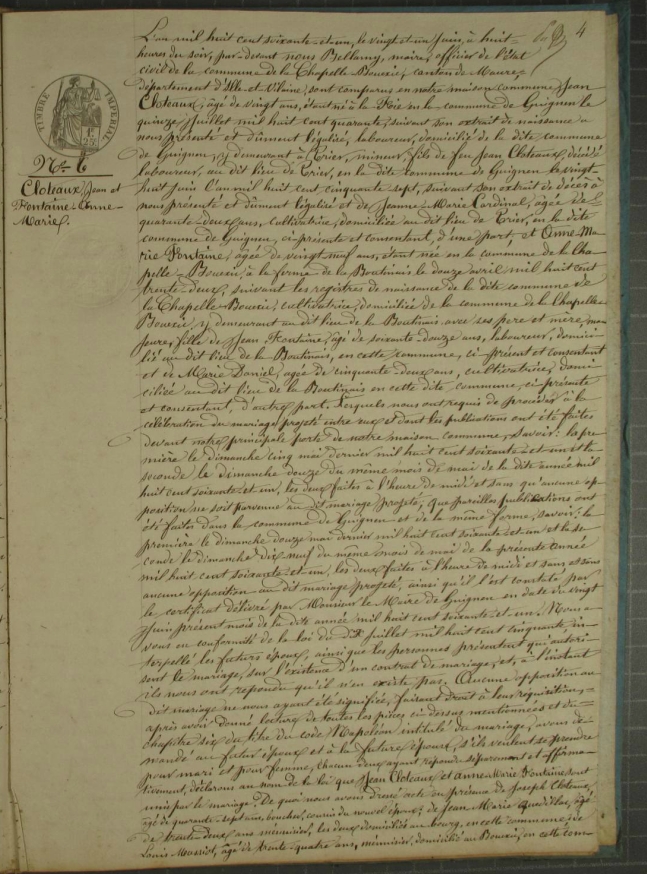 4
L'an mil huit cent soixante-et-un, le vingt-et-un Juin, à huit
heures du soir, par-devant nous Bellamy, maire, officier de l'état
civil de la commune de la Chapelle Bouexic, canton de Maure,
département d'Ille-et-Vilaine, sont comparus en notre maison commune Jean
Cloteaux, âgé de vingt ans, étant né à la commune de Guignen le
quinze Juillet mil huit cent quarante, suivant son extrait de naissance à
nous présenté et dûment légalisé, laboureur, domicilié de la dite commune
de Guignen, y demeurant à mineur, fils de feu Jean Cloteaux, décédé
laboureur, au dit lieu de en la dite commune de Guignen le vingt
huit Juin l'an mil huit cent cinquante sept, suivant son extrait de décès à
nous présenté et dûment légalisé et de Jeanne-Marie Cardinal, âgée de
quarante-deux ans, cultivatrice, domiciliée au dit lieu de en la dite
commune de Guignen, ci-présente et consentant, d'une part, et Anne-Ma-
rie Fontaine, âgée de vingt-neuf ans, étant née en la commune de la Cha-
pelle-Bouexic, à la ferme de la Boutinais le douze avril mil huit cent
trente-deux, suivant les registres de naissance de la dite commune de
la Chapelle Bouexic, cultivatrice, domiciliée de la commune de la Chapelle
Bouexic, y demeurant au dit lieu de la Boutinais avec ses père et mère, ma-
jeure, fille de Jean Fontaine, âgé de soixante-douze ans, laboureur, domici-
lié au dit lieu de la Boutinais, en cette commune, ci-présent et consentant
et de Marie Daniel, âgée de cinquante-deux ans, cultivatrice, domi-
ciliée au dit lieu de la Boutinais en cette dite commune, ci-présente
et consentant, d'autre part. Lesquels nous ont requis de procéder à la
célébration du mariage projeté entre eux et dont les publications ont été faites
devant notre principale porte de notre maison commune, savoir: la pre-
mière le dimanche cinq mai dernier mil huit cent soixante-et-un et la
seconde le dimanche douze du même mois de mai de la dite année mil
huit cent soixante-et-un, les deux faites à l'heure de midi et sans qu'aucune op-
position ne soit parvenue au dit mariage projeté, que pareilles publications ont
été faites dans la commune de Guignen et de la même forme, savoir: la
première le dimanche douze mai dernier mil huit cent soixante-et-un et la se-
conde le dimanche dix neuf du même mois de mai de la présente année
mil huit cent soixante-et-un, les deux faites à l'heure de midi et sans
aucune opposition au dit mariage projeté, ainsi qu'il l'est constaté par
le certificat délivré par Monsieur le Maire de Guignen en date du vingt
Juin présent mois de la dite année mil huit cent soixante-et-un. Nous a-
vons en conformité de la loi du Juillet mil huit cent cinquante in-
terpellé les futurs époux, ainsi que les personnes présentent qui autori-
sent le mariage, sur l'existence d'un contrat de mariage, et, à l'instant
ils nous ont répondu qu'il n'en existe pas. Aucune opposition au
dit mariage ne nous ayant été signifiée, faisant droit à leur réquisition,
après avoir donné lecture de toutes les pièces ci-dessus mentionnées et du
chapitre six du titre du code Napoléon intitulé du mariage, avons de-
mandé au futur époux et à la future épouse, s'ils veulent se prendre
pour mari et pour femme, chacun d'eux ayant répondu séparément et affirma-
tivement, déclarons au nom de la loi que Jean Cloteaux et Anne-Marie Fontaine sont
unis par le mariage. De quoi nous avons dressé acte en présence de Joseph Cloteaux,
âgé de quarante-sept ans, boucher, cousin du nouvel époux; de Jean-Marie âgé
de trente-deux ans menuisier, les deux domiciliés au bourg, en cette commune; de
Louis Massiot, âgé de trente-quatre ans, menuisier, domicilié au Bouexic, en cette com-
TIMBRE IMPÉRIAL
1F 25
N° 6
Cloteaux, Jean et
Fontaine-Anne-
Marie.